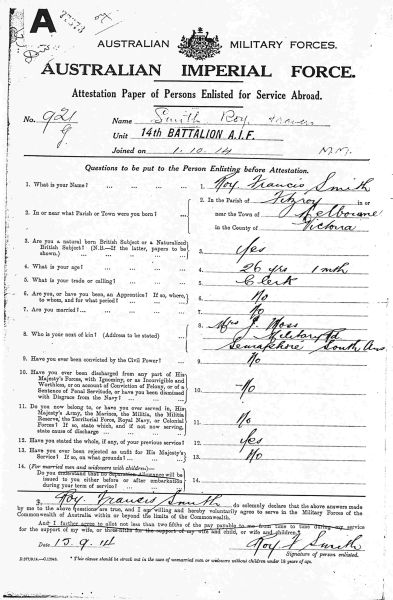 A
AUSTRALIAN MILITARY FORCES.
AUSTRALIAN IMPERIAL FORCE.
Attestation Paper of Persons Enlisted for Service Abroad.
No. 921 Name Smith Roy Francis
Unit 14th BATTALION A.I.F.
Joined on 1.10.14
Questions to be put to the Person Enlisting before Attestation.
1. What is your Name? 1. Roy Francis Smith
2. In or near what Parish or Town were you born? 2. In the Parish of Fitzroy in or
near the Town of Melbourne
in the County of Victoria
3. Are you a natural born British Subject or a Naturalized
British Subject? (N.B.—If the latter, papers to be
shown.) 3. Yes
4. What is your age? 4. 26 yrs 1 mth
5. What is your trade or calling? 5. Clerk
6. Are you, or have you been, an Apprentice? If so, where,
to whom, and for what period? 6. No
7. Are you married? 7. No
8. Who is your next of kin? (Address to be stated) 8. Mrs J. Moss
Military Rd
Semaphore South Aus
9. Have you ever been convicted by the Civil Power? 9. No
10. Have you ever been discharged from any part of His
Majesty's Forces, with Ignominy, or as Incorrigible and
Worthless, or on account of Conviction of Felony, or of a
Sentence of Penal Servitude, or have you been dismissed
with Disgrace from the Navy? 10. No
11. Do you now belong to, or have you ever served in, His
Majesty's Army, the Marines, the Militia, the Militia
Reserve, the Territorial Force, Royal Navy, or Colonial
Forces? If so, state which, and if not now serving,
state cause of discharge 11. No
12. Have you stated the whole, if any, of your previous service? 12. Yes
13. Have you ever been rejected as unfit for His Majesty's
Service? If so, on what grounds 13. No
14. (For married men and widowers with children)—
Do you understand that no Separation Allowance will be
issued to you either before or after embarkation
during your term of service? 14.
I, Roy Francis Smith do solemnly declare that the above answers made
by me to the above questions are true, and I am willing and hereby voluntarily agree to serve in the Military Forces of the
Commonwealth of Australia within or beyond the limits of the Commonwealth.
And I further agree to allot not less than two-fifths of the pay payable to me from time to time during my service
for the support of my wife, or three-fifths for the support of my wife and child, or wife and children.
Date 15.9.14 Roy F Smith
Signature of person enlisted.
* This clause should be struck out in the case of unmarried men or widowers without children under 18 years of age.